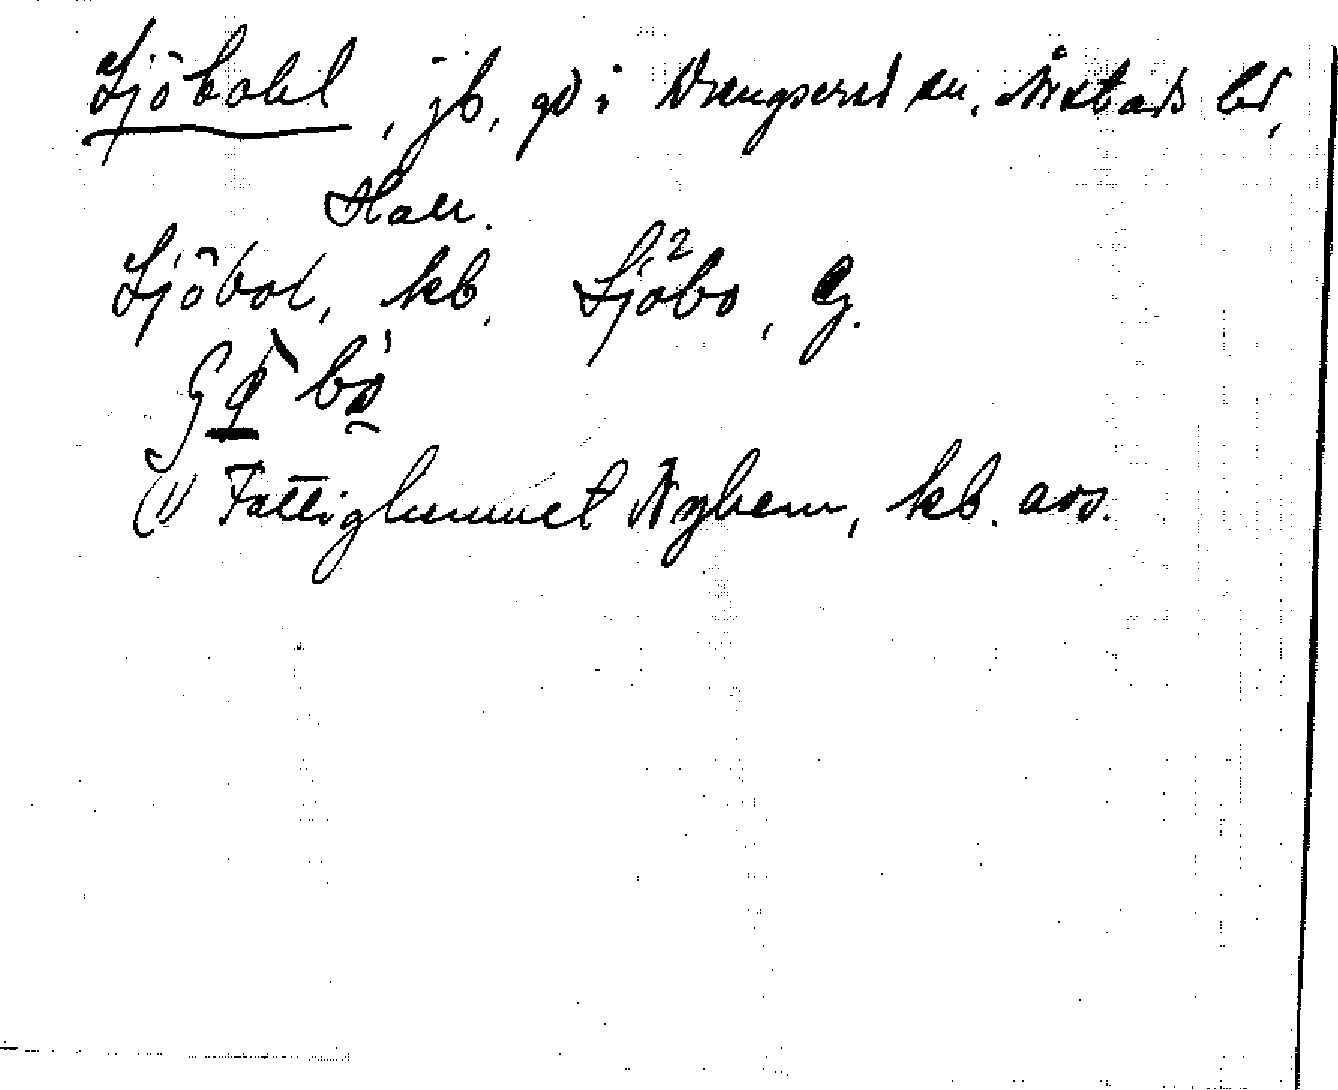 Sjöbohl, jb, gd i Drengsered sn, Årstads hd,
Hall.
Sjöbol, kb. Sjöbo, G.
bo
(1) Fattighemmet Nyhem, kb. avs.